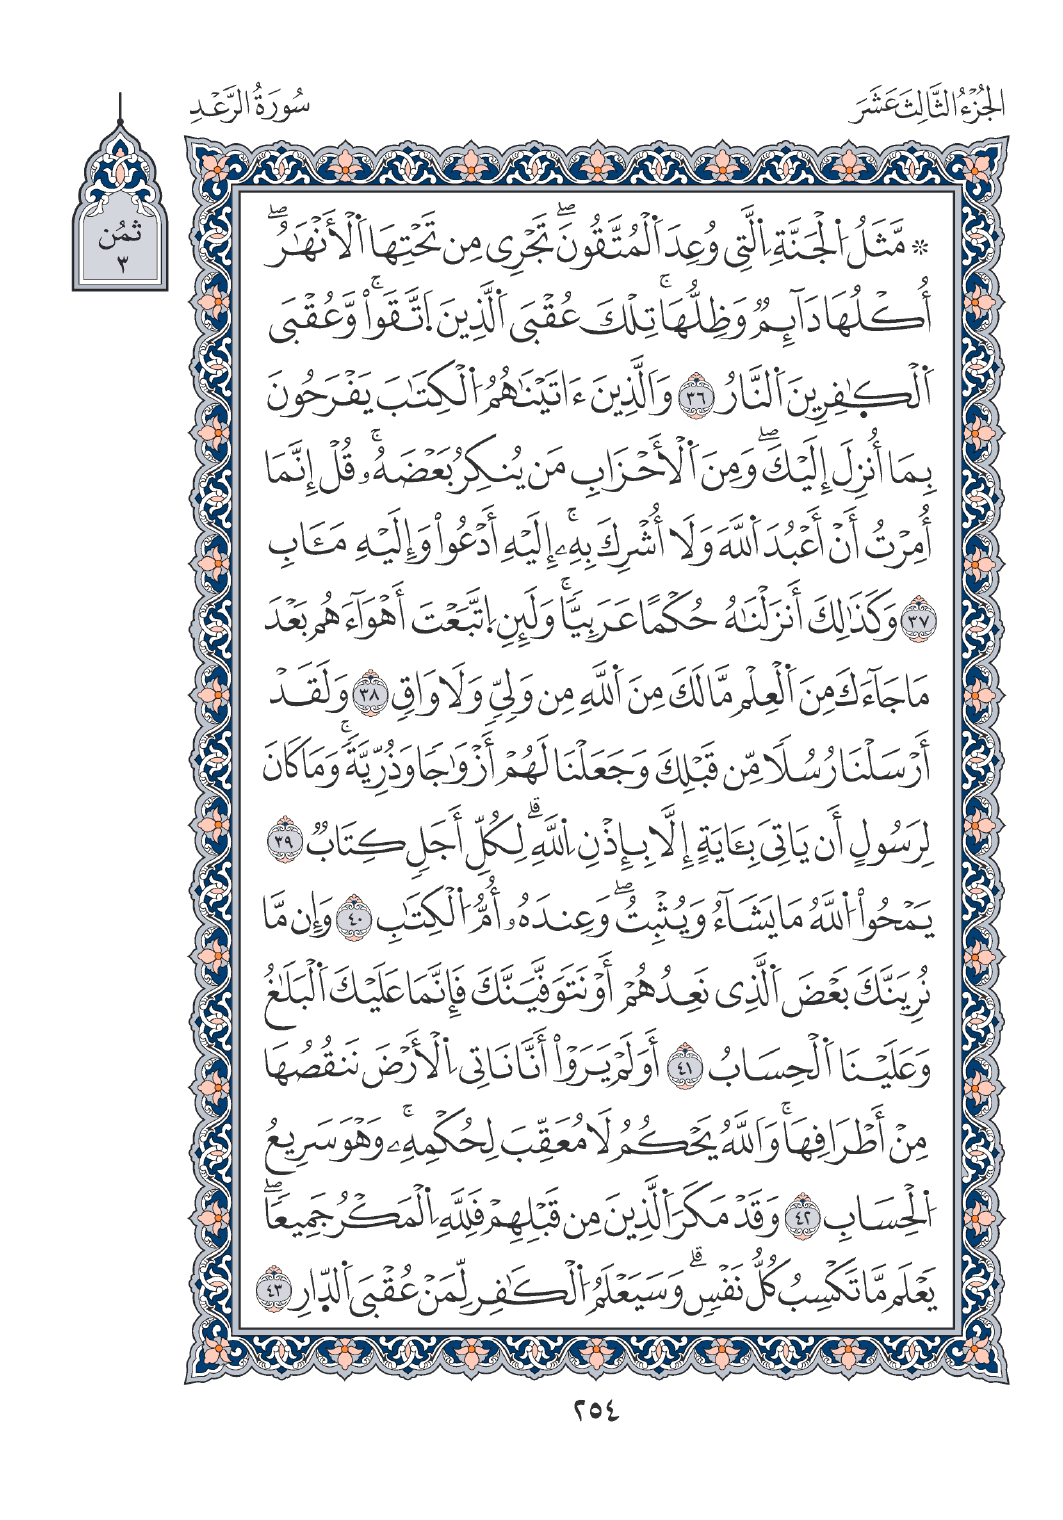 الجُزْءُ الثَّالِثَ عَشَرَ
سُورَةُ الرَّعْدِ
ثُمُن
٣
۞ مَّثَلُ اُ۬لْجَنَّةِ اِ۬لتِي وُعِدَ اَ۬لْمُتَّقُونَۖ تَجْرِي مِن تَحْتِهَا اَ۬لْأَنْهَٰرُۖ
أُكْلُهَا دَآئِمٞ وَظِلُّهَاۚ تِلْكَ عُقْبَى اَ۬لَّذِينَ اَ۪تَّقَواْۚ وَّعُقْبَى
اَ۬لْكٰ۪فِرِينَ اَ۬لنَّارُ ٣٦ وَالَّذِينَ ءَاتَيْنَٰهُمُ اُ۬لْكِتَٰبَ يَفْرَحُونَ
بِمَا أُنزِلَ إِلَيْكَۖ وَمِنَ اَ۬لْأَحْزَابِ مَن يُنكِرُ بَعْضَهُۥۚ قُلْ إِنَّمَا
أُمِرْتُ أَنْ أَعْبُدَ اَ۬للَّهَ وَلَا أُشْرِكَ بِهِۦۚ إِلَيْهِ أَدْعُواْ وَإِلَيْهِ مَـَٔابِ
٣٧ وَكَذَٰلِكَ أَنزَلْنَٰهُ حُكْمًا عَرَبِيّٗاۚ وَلَئِنِ اِ۪تَّبَعْتَ أَهْوَآءَهُم بَعْدَ
مَا جَآءَكَ مِنَ اَ۬لْعِلْمِ مَّا لَكَ مِنَ اَ۬للَّهِ مِن وَلِيّٖ وَلَا وَاقٖ ٣٨ وَلَقَدْ
أَرْسَلْنَا رُسُلٗا مِّن قَبْلِكَ وَجَعَلْنَا لَهُمْ أَزْوَٰجٗا وَذُرِّيَّةٗۚ وَمَا كَانَ
لِرَسُولٍ أَن يَاتِيَ بِـَٔايَةٍ إِلَّا بِإِذْنِ اِ۬للَّهِۗ لِكُلِّ أَجَلٖ كِتَابٞ ٣٩
يَمْحُواْ اُ۬للَّهُ مَا يَشَآءُ وَيُثْبِتُۖ وَعِندَهُۥ أُمُّ اُ۬لْكِتَٰبِ ٤٠ وَإِن مَّا
نُرِيَنَّكَ بَعْضَ اَ۬لَّذِي نَعِدُهُمْ أَوْ نَتَوَفَّيَنَّكَ فَإِنَّمَا عَلَيْكَ اَ۬لْبَلَٰغُ
وَعَلَيْنَا اَ۬لْحِسَابُ ٤١ أَوَلَمْ يَرَوْاْ أَنَّا نَاتِي اِ۬لْأَرْضَ نَنقُصُهَا
مِنْ أَطْرَافِهَاۚ وَاَللَّهُ يَحْكُمُ لَا مُعَقِّبَ لِحُكْمِهِۦۚ وَهْوَ سَرِيعُ
اُ۬لْحِسَابِ ٤٢ وَقَدْ مَكَرَ اَ۬لَّذِينَ مِن قَبْلِهِمْ فَلِلَّهِ اِ۬لْمَكْرُ جَمِيعٗاۖ
يَعْلَم مَّا تَكْسِبُ كُلُّ نَفْسٖۗ وَسَيَعْلَمُ اُ۬لْكَٰفِر لِّمَنْ عُقْبَى اَ۬لدّ۪ارِ ٤٣
٢٥٤